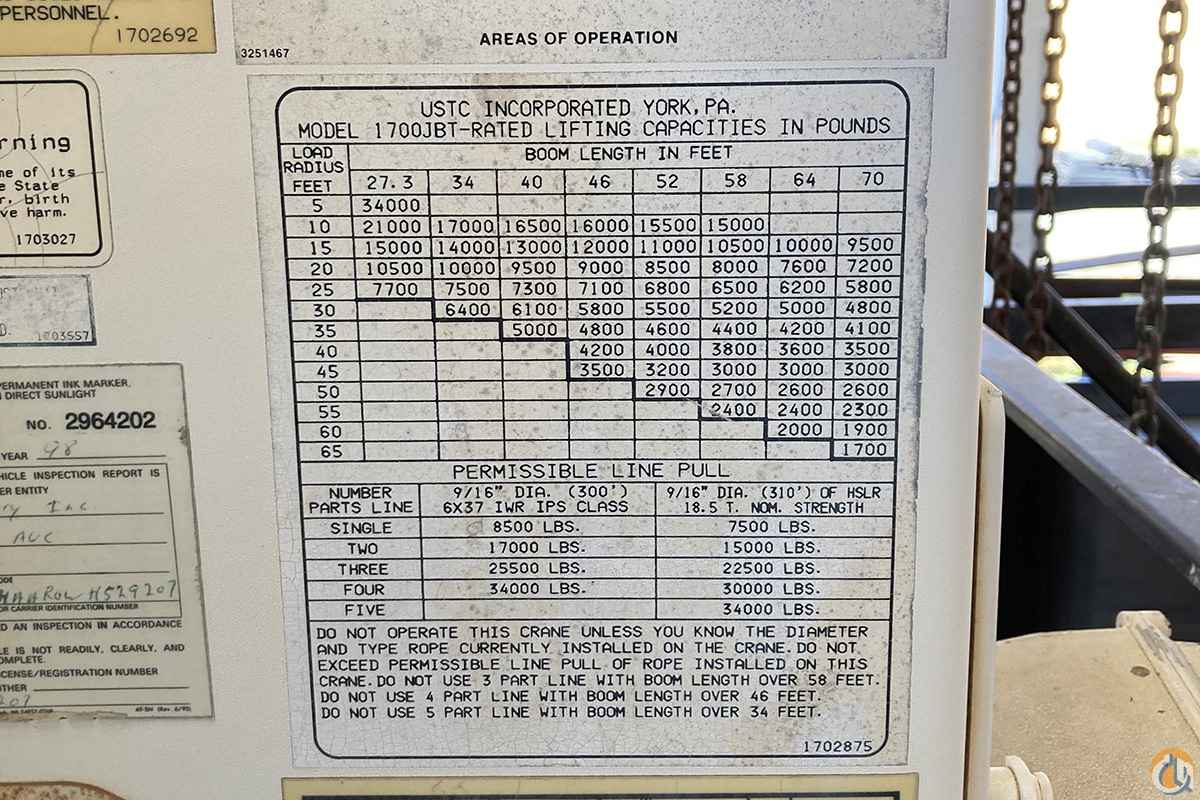 PERSONNEL.
1702692
3251467
AREAS OF OPERATION
rning
me of its
e State
r, birth
ve harm.
1703027
D.
1703557
PERMANENT INK MARKER.
DIRECT SUNLIGHT
NO. 2964202
YEAR 98
HICLE INSPECTION REPORT IS
ER ENTITY
Inc
AVE
H529207
OR CARRIER IDENTIFICATION NUMBER
D AN INSPECTION IN ACCORDANCE
LE IS NOT READILY, CLEARLY, AND
OMPLETE.
CENSE/REGISTRATION NUMBER
THER
USTC INCORPORATED YORK, PA.
MODEL 1700JBT-RATED LIFTING CAPACITIES IN POUNDS
LOAD RADIUS FEET
BOOM LENGTH IN FEET
27.3 34 40 46 52 58 64 70
5 34000
10 21000 17000 16500 16000 15500 15000
15 15000 14000 13000 12000 11000 10500 10000 9500
20 10500 10000 9500 9000 8500 8000 7600 7200
25 7700 7500 7300 7100 6800 6500 6200 5800
30 6400 6100 5800 5500 5200 5000 4800
35 5000 4800 4600 4400 4200 4100
40 4200 4000 3800 3600 3500
45 3500 3200 3000 3000 3000
50 2900 2700 2600 2600
55 2400 2400 2300
60 2000 1900
65 1700
PERMISSIBLE LINE PULL
NUMBER PARTS LINE
9/16" DIA. (300') 6X37 IWR IPS CLASS
9/16" DIA. (310') OF HSLR 18.5 T. NOM. STRENGTH
SINGLE 8500 LBS. 7500 LBS.
TWO 17000 LBS. 15000 LBS.
THREE 25500 LBS. 22500 LBS.
FOUR 34000 LBS. 30000 LBS.
FIVE 34000 LBS.
DO NOT OPERATE THIS CRANE UNLESS YOU KNOW THE DIAMETER
AND TYPE ROPE CURRENTLY INSTALLED ON THE CRANE. DO NOT
EXCEED PERMISSIBLE LINE PULL OF ROPE INSTALLED ON THIS
CRANE. DO NOT USE 3 PART LINE WITH BOOM LENGTH OVER 58 FEET.
DO NOT USE 4 PART LINE WITH BOOM LENGTH OVER 46 FEET.
DO NOT USE 5 PART LINE WITH BOOM LENGTH OVER 34 FEET.
1702875